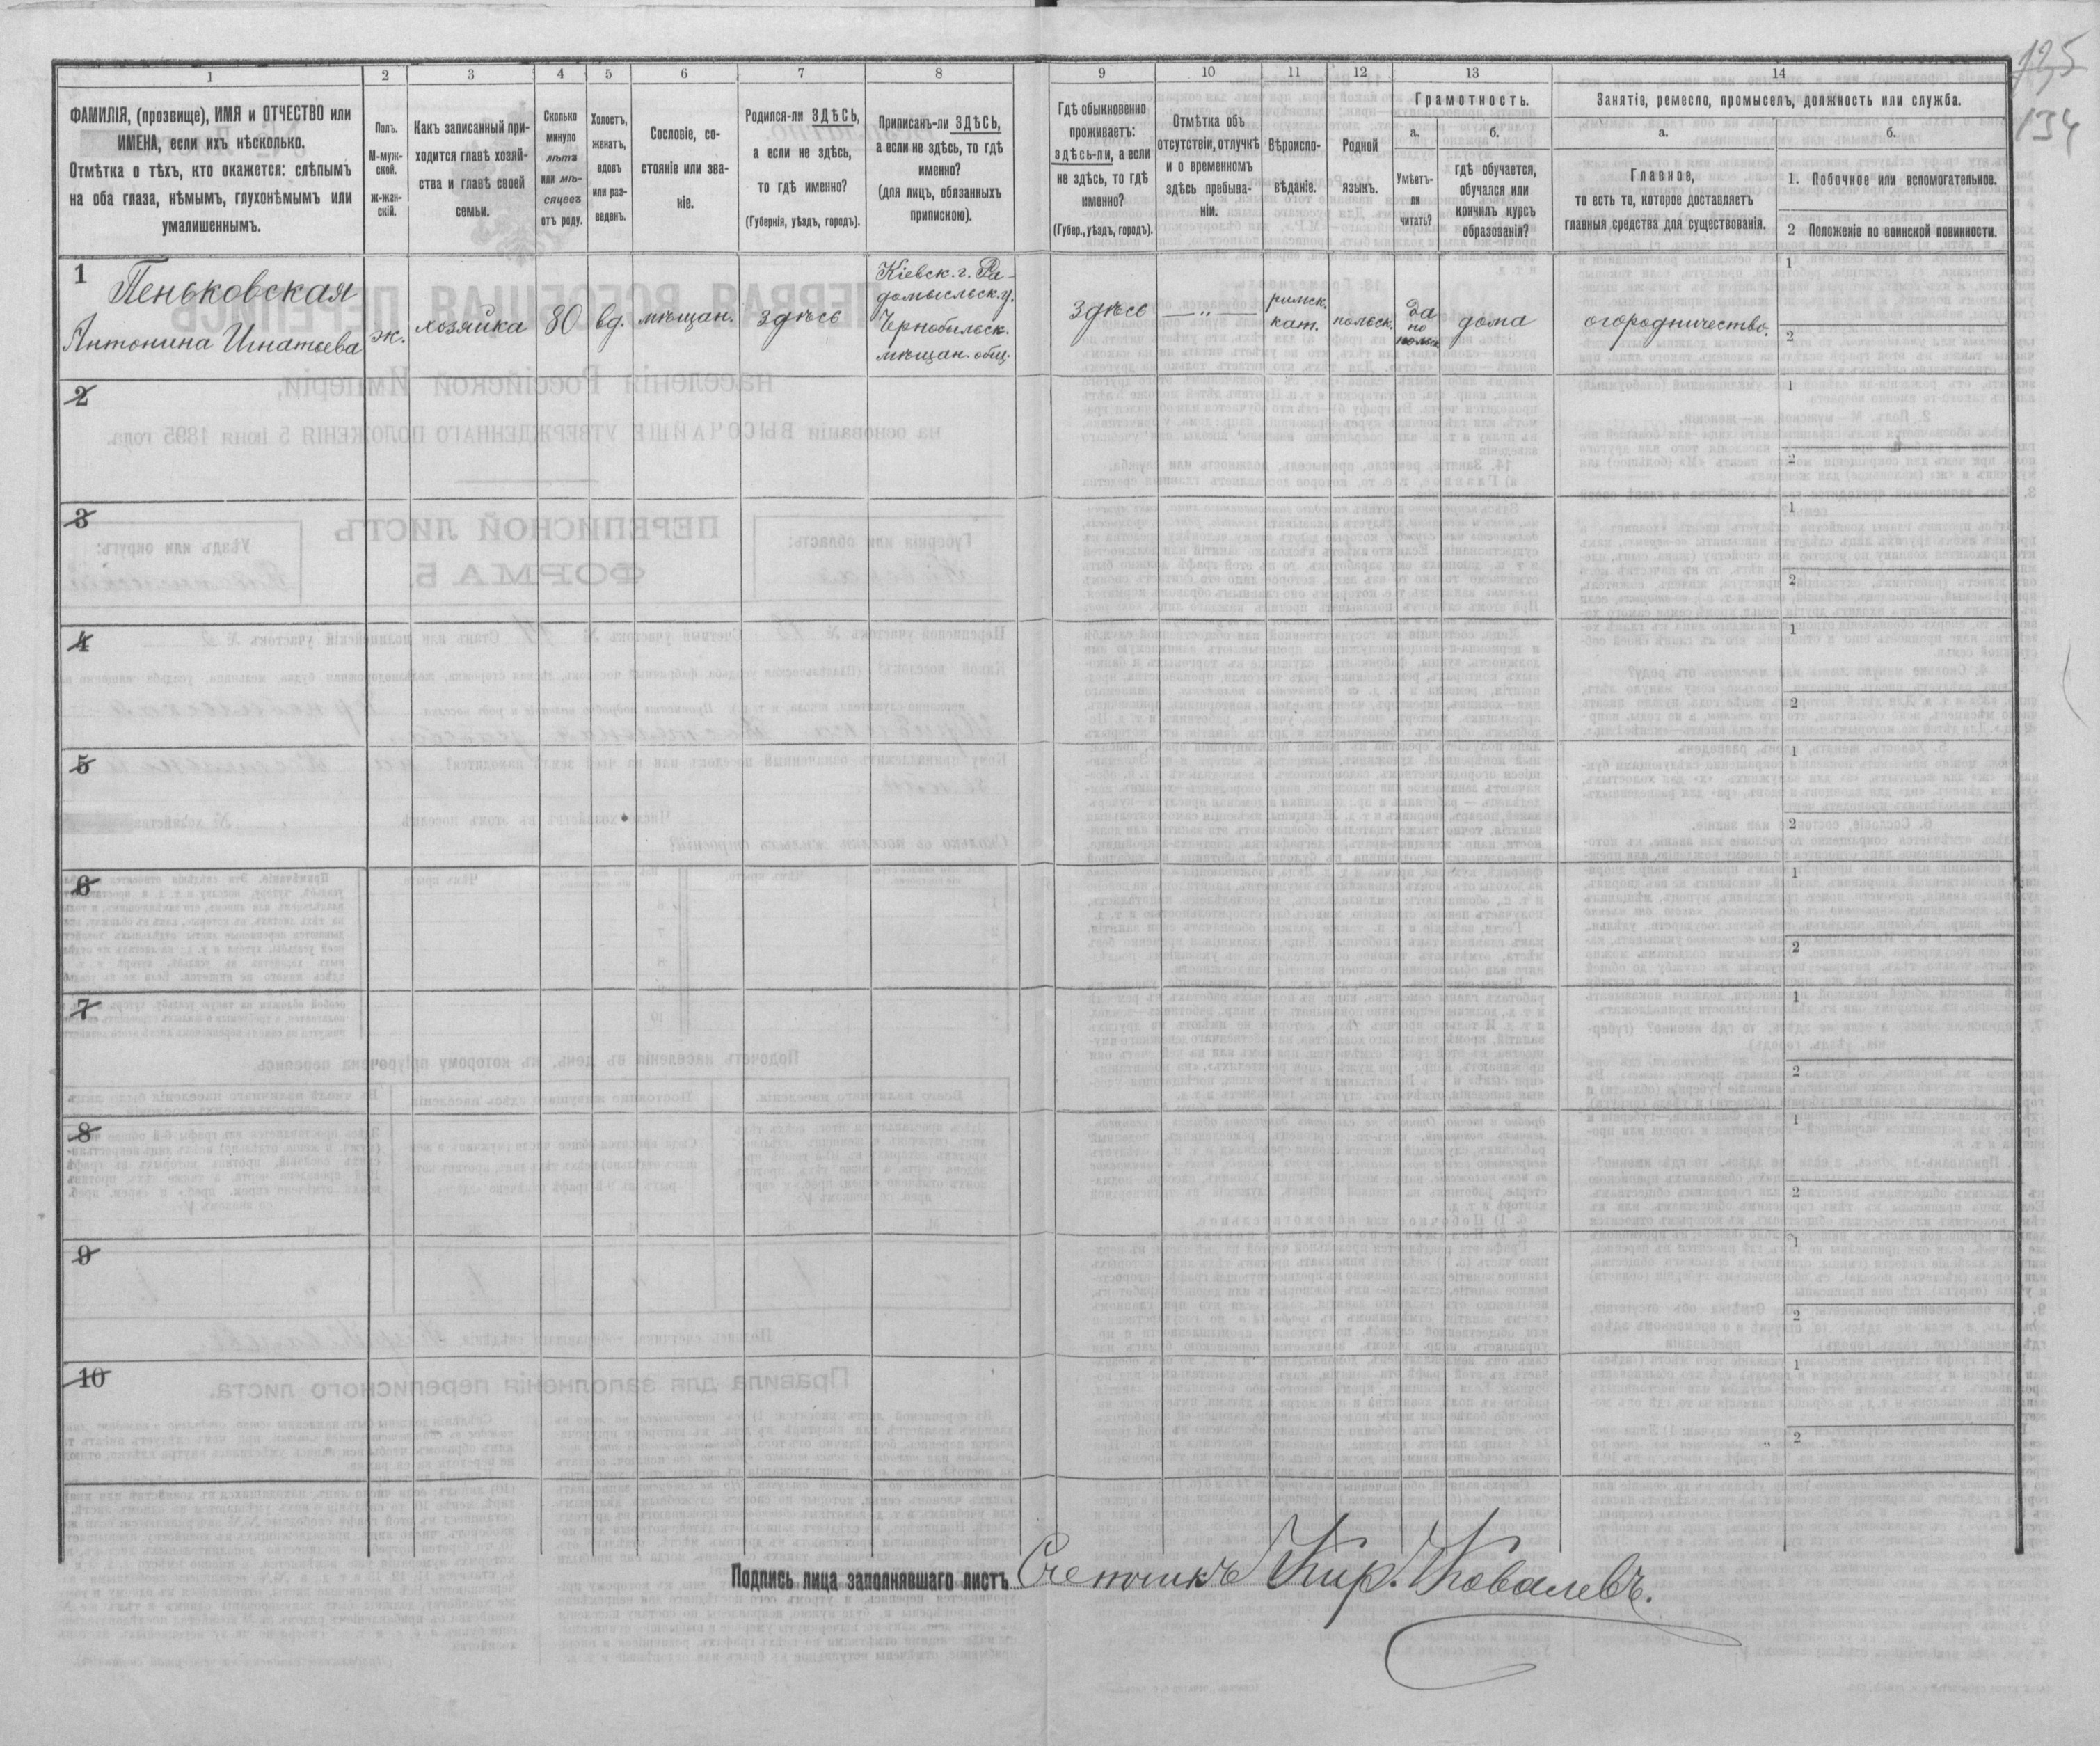 125
134
1
2
3
4
5
6
7
8
9
10
11
12
13
14
ФАМИЛІЯ, (прозвище), ИМЯ и ОТЧЕСТВО или
ИМЕНА, если ихъ нѣсколько.
Отмѣтка о тѣхъ, кто окажется: слѣпымъ
на оба глаза, нѣмымъ, глухонѣмымъ или
умалишеннымъ.
Полъ.
М-муж-
ской.
ж-жен-
скій.
Какъ записанный при-
ходится главѣ хозяй-
ства и главѣ своей
семьи.
Сколько
минуло
лѣтъ
или мѣ-
сяцевъ
отъ роду.
Холостъ,
женатъ,
вдовъ
или раз-
веденъ.
Сословіе, со-
стояніе или зва-
ніе.
Родился-ли ЗДѢСЬ,
а если не здѣсь,
то гдѣ именно?
(Губернія, уѣздъ, городъ).
Приписанъ-ли ЗДѢСЬ,
а если не здѣсь, то гдѣ
именно?
(для лицъ, обязанныхъ
припискою).
Гдѣ обыкновенно
проживаетъ:
здѣсь-ли, а если
не здѣсь, то гдѣ
именно?
(Губер., уѣздъ, городъ).
Отмѣтка объ
отсутствіи, отлучкѣ
и о временномъ
здѣсь пребыва-
ніи.
Вѣроиспо-
вѣданіе.
Родной
языкъ.
Грамотность.
а.
Умѣетъ-
ли
читать?
б.
гдѣ обучается,
обучался или
кончилъ курсъ
образованія?
Занятіе, ремесло, промыселъ, должность или служба.
а.
Главное,
то есть то, которое доставляетъ
главныя средства для существованія.
б.
1. Побочное или вспомогательное.
2 Положеніе по воинской повинности.
1
Пеньковская
Антонина Игнатьева
ж.
хозяйка
80
вд.
мѣщан.
здѣсь
Кіевск. г. Ра-
домысльск. у.
Чернобыльск.
мѣщан. общ.
здѣсь
— „ —
римск.
кат.
польск.
да
по
польск
дома
огородничество.
1
2
2
1
2
3
1
2
4
1
2
5
1
2
6
1
2
7
1
2
8
1
2
9
1
2
10
1
2
Подпись лица заполнявшаго листъ Счетчикъ Кир. Ковалевъ.